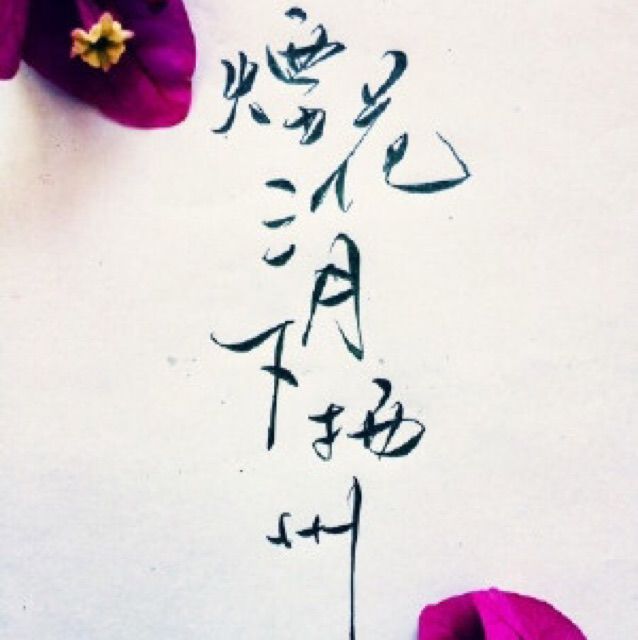 烟花三月下扬州